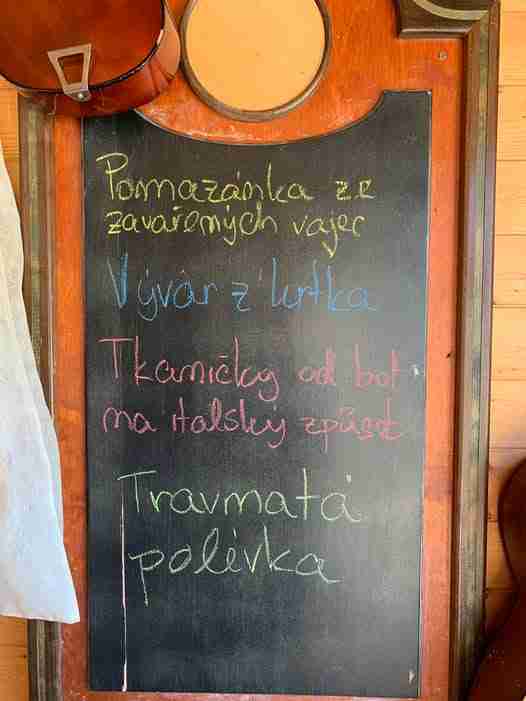 Pomazánka ze
zavařených vajec
Vývar z krtka
Tkaničky od bot
na italský způsob
Travnatá
polévka